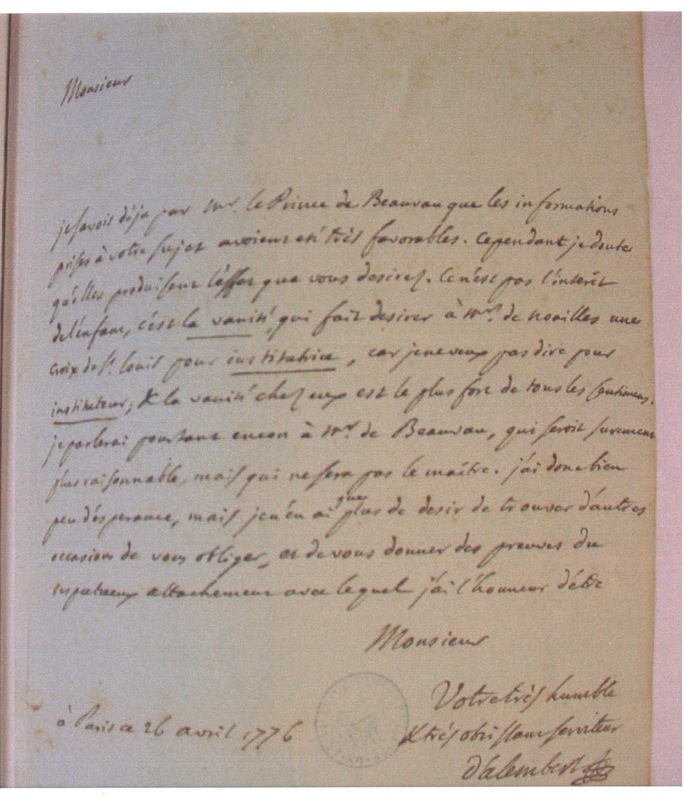 Monsieur
je savois déja par Mr. le Prince de Beauvau que les informations
prises à votre sujet avoient été très favorables. Cependant je doute
qu'elles produisent l'effet que vous desirez. Ce n'est pas l'interêt
de l'enfant, c'est la vanité, qui fait desirer à Mr. de Noailles une
croix de St. Louis pour institutrice, car je ne veux pas dire pour
instituteur; & la vanité chez eux est le plus fort de tous les sentimens.
je parlerai pourtant encore à Mr. de Beauvau, qui seroit surement
plus raisonnable, mais qui ne sera pas le maître. j'ai donc bien
peu d'esperance, mais je n'en ai que plus de desir de trouver d'autres
occasions de vous obliger, et de vous donner des preuves du
respectueux attachement avec lequel j'ai l'honneur d'être
Monsieur
Votre très humble
& très obeissant serviteur
d'alembert
à Paris ce 26 avril 1776